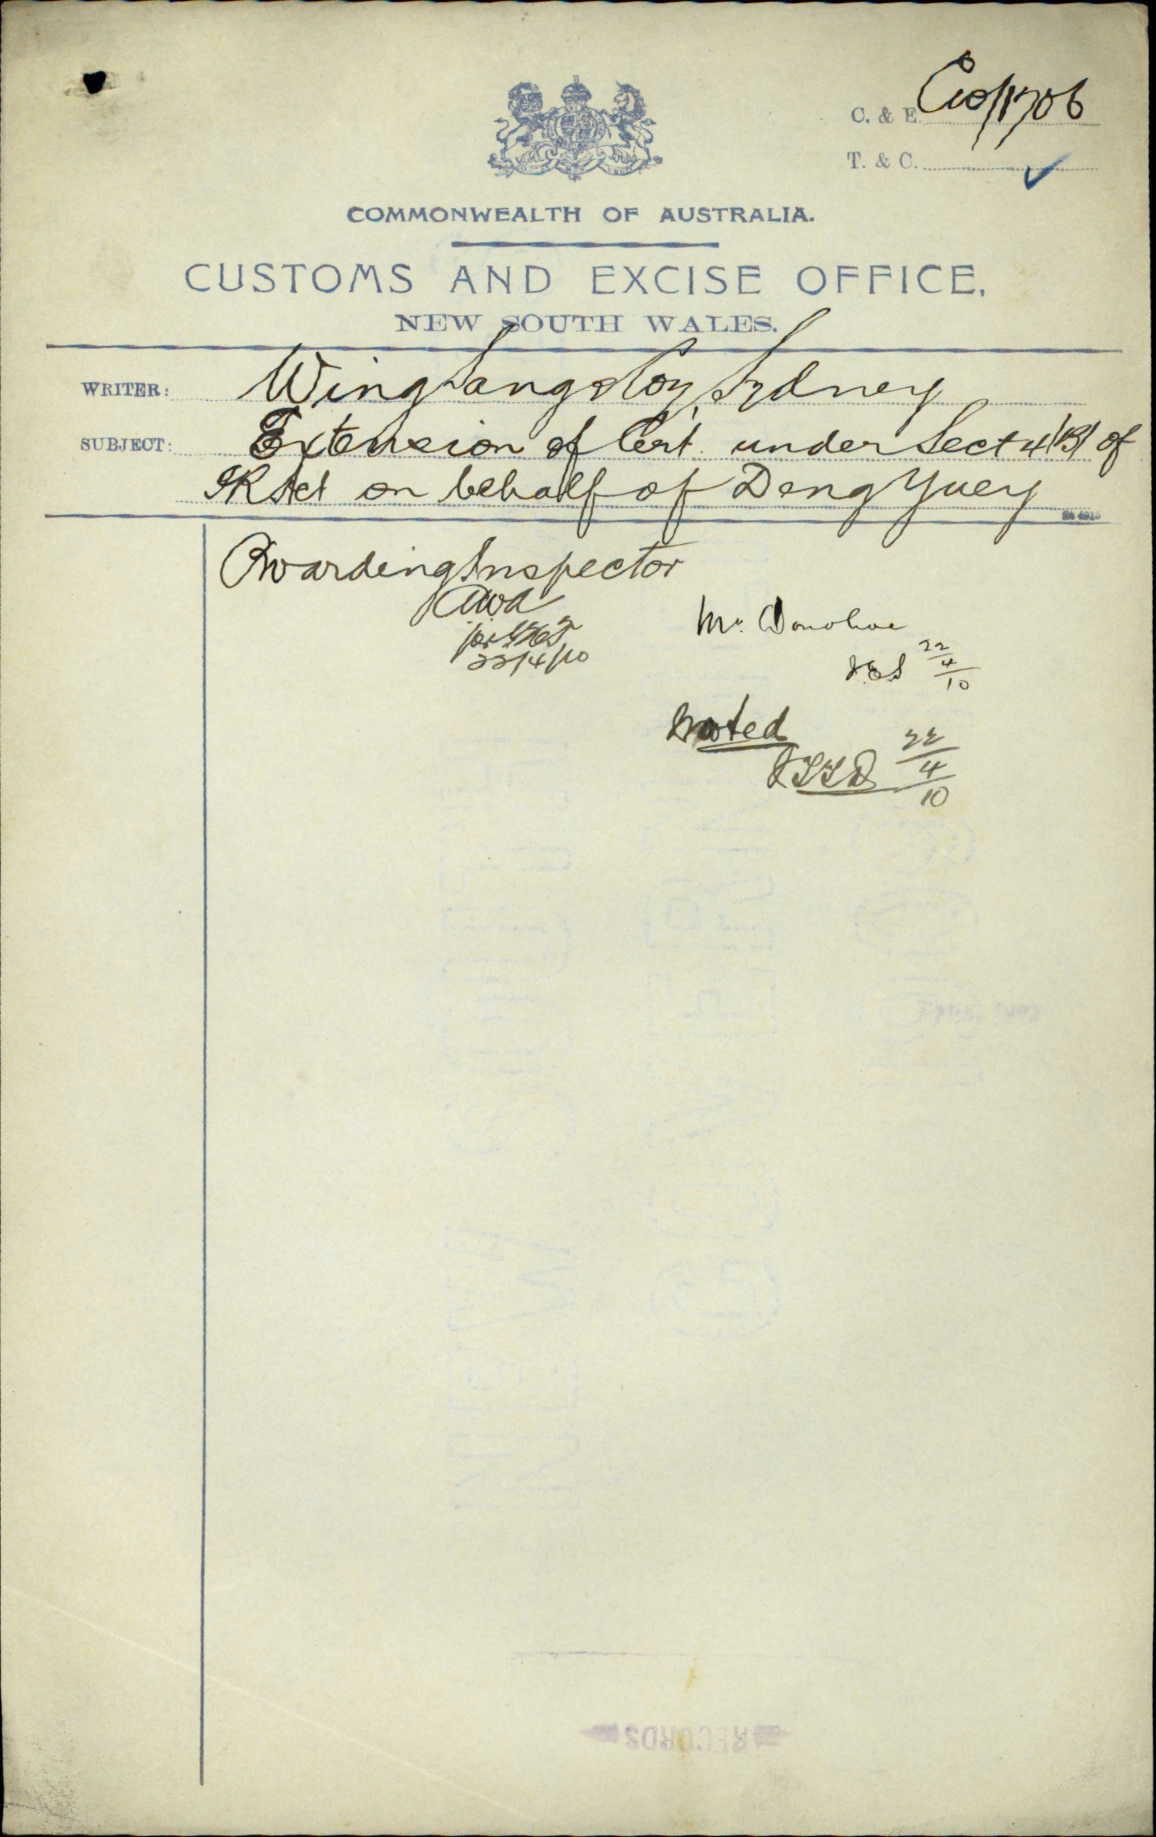 C. & E. C10/1706
T. & C.
COMMONWEALTH OF AUSTRALIA.
CUSTOMS AND EXCISE OFFICE,
NEW SOUTH WALES.
WRITER: Wing Sang & Coy, Sydney
SUBJECT: Extension of Cert. under Sect 4(B) of
IR Act on behalf of Deng Yuey
Boarding Inspector
22/4/10
Mr. Donohoe
22/4/10
Noted
22/4/10
RECORDS